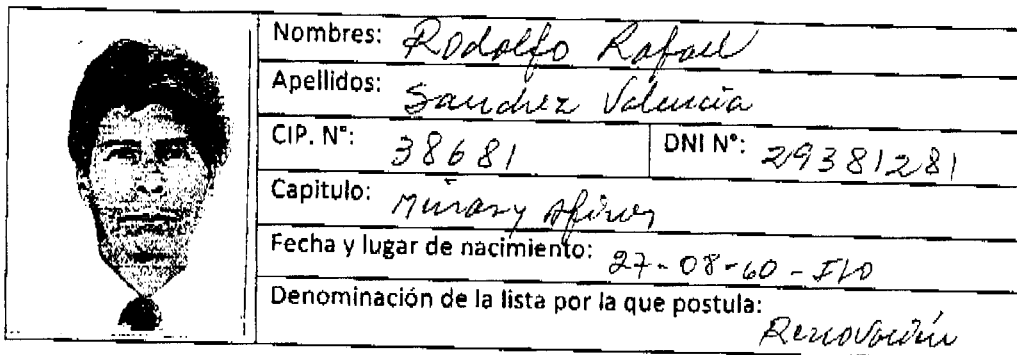 Nombres: Rodolfo Rafael
Apellidos: Sanchez Valencia
CIP. N°: 38681 DNI N°: 29381281
Capitulo: Minas y Afines
Fecha y lugar de nacimiento: 27-08-60 - ILO
Denominación de la lista por la que postula:
Renovación